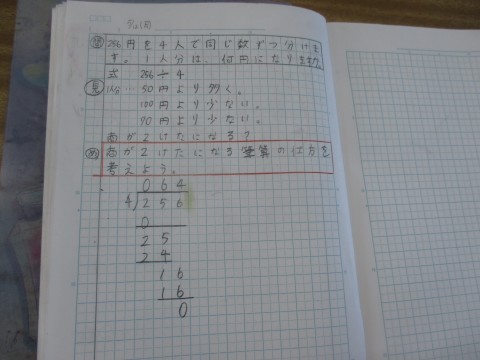 問 256円を4人で同じ数ずつ分けま
す。1人分は、何円になりますか。
式 256÷4
見 50円より多く。
100円より少ない。
90円より少ない。
商が2けたになる?
め 商が2けたになる筆算の仕方を
考えよう。
064
4)256
0
25
24
16
16
0